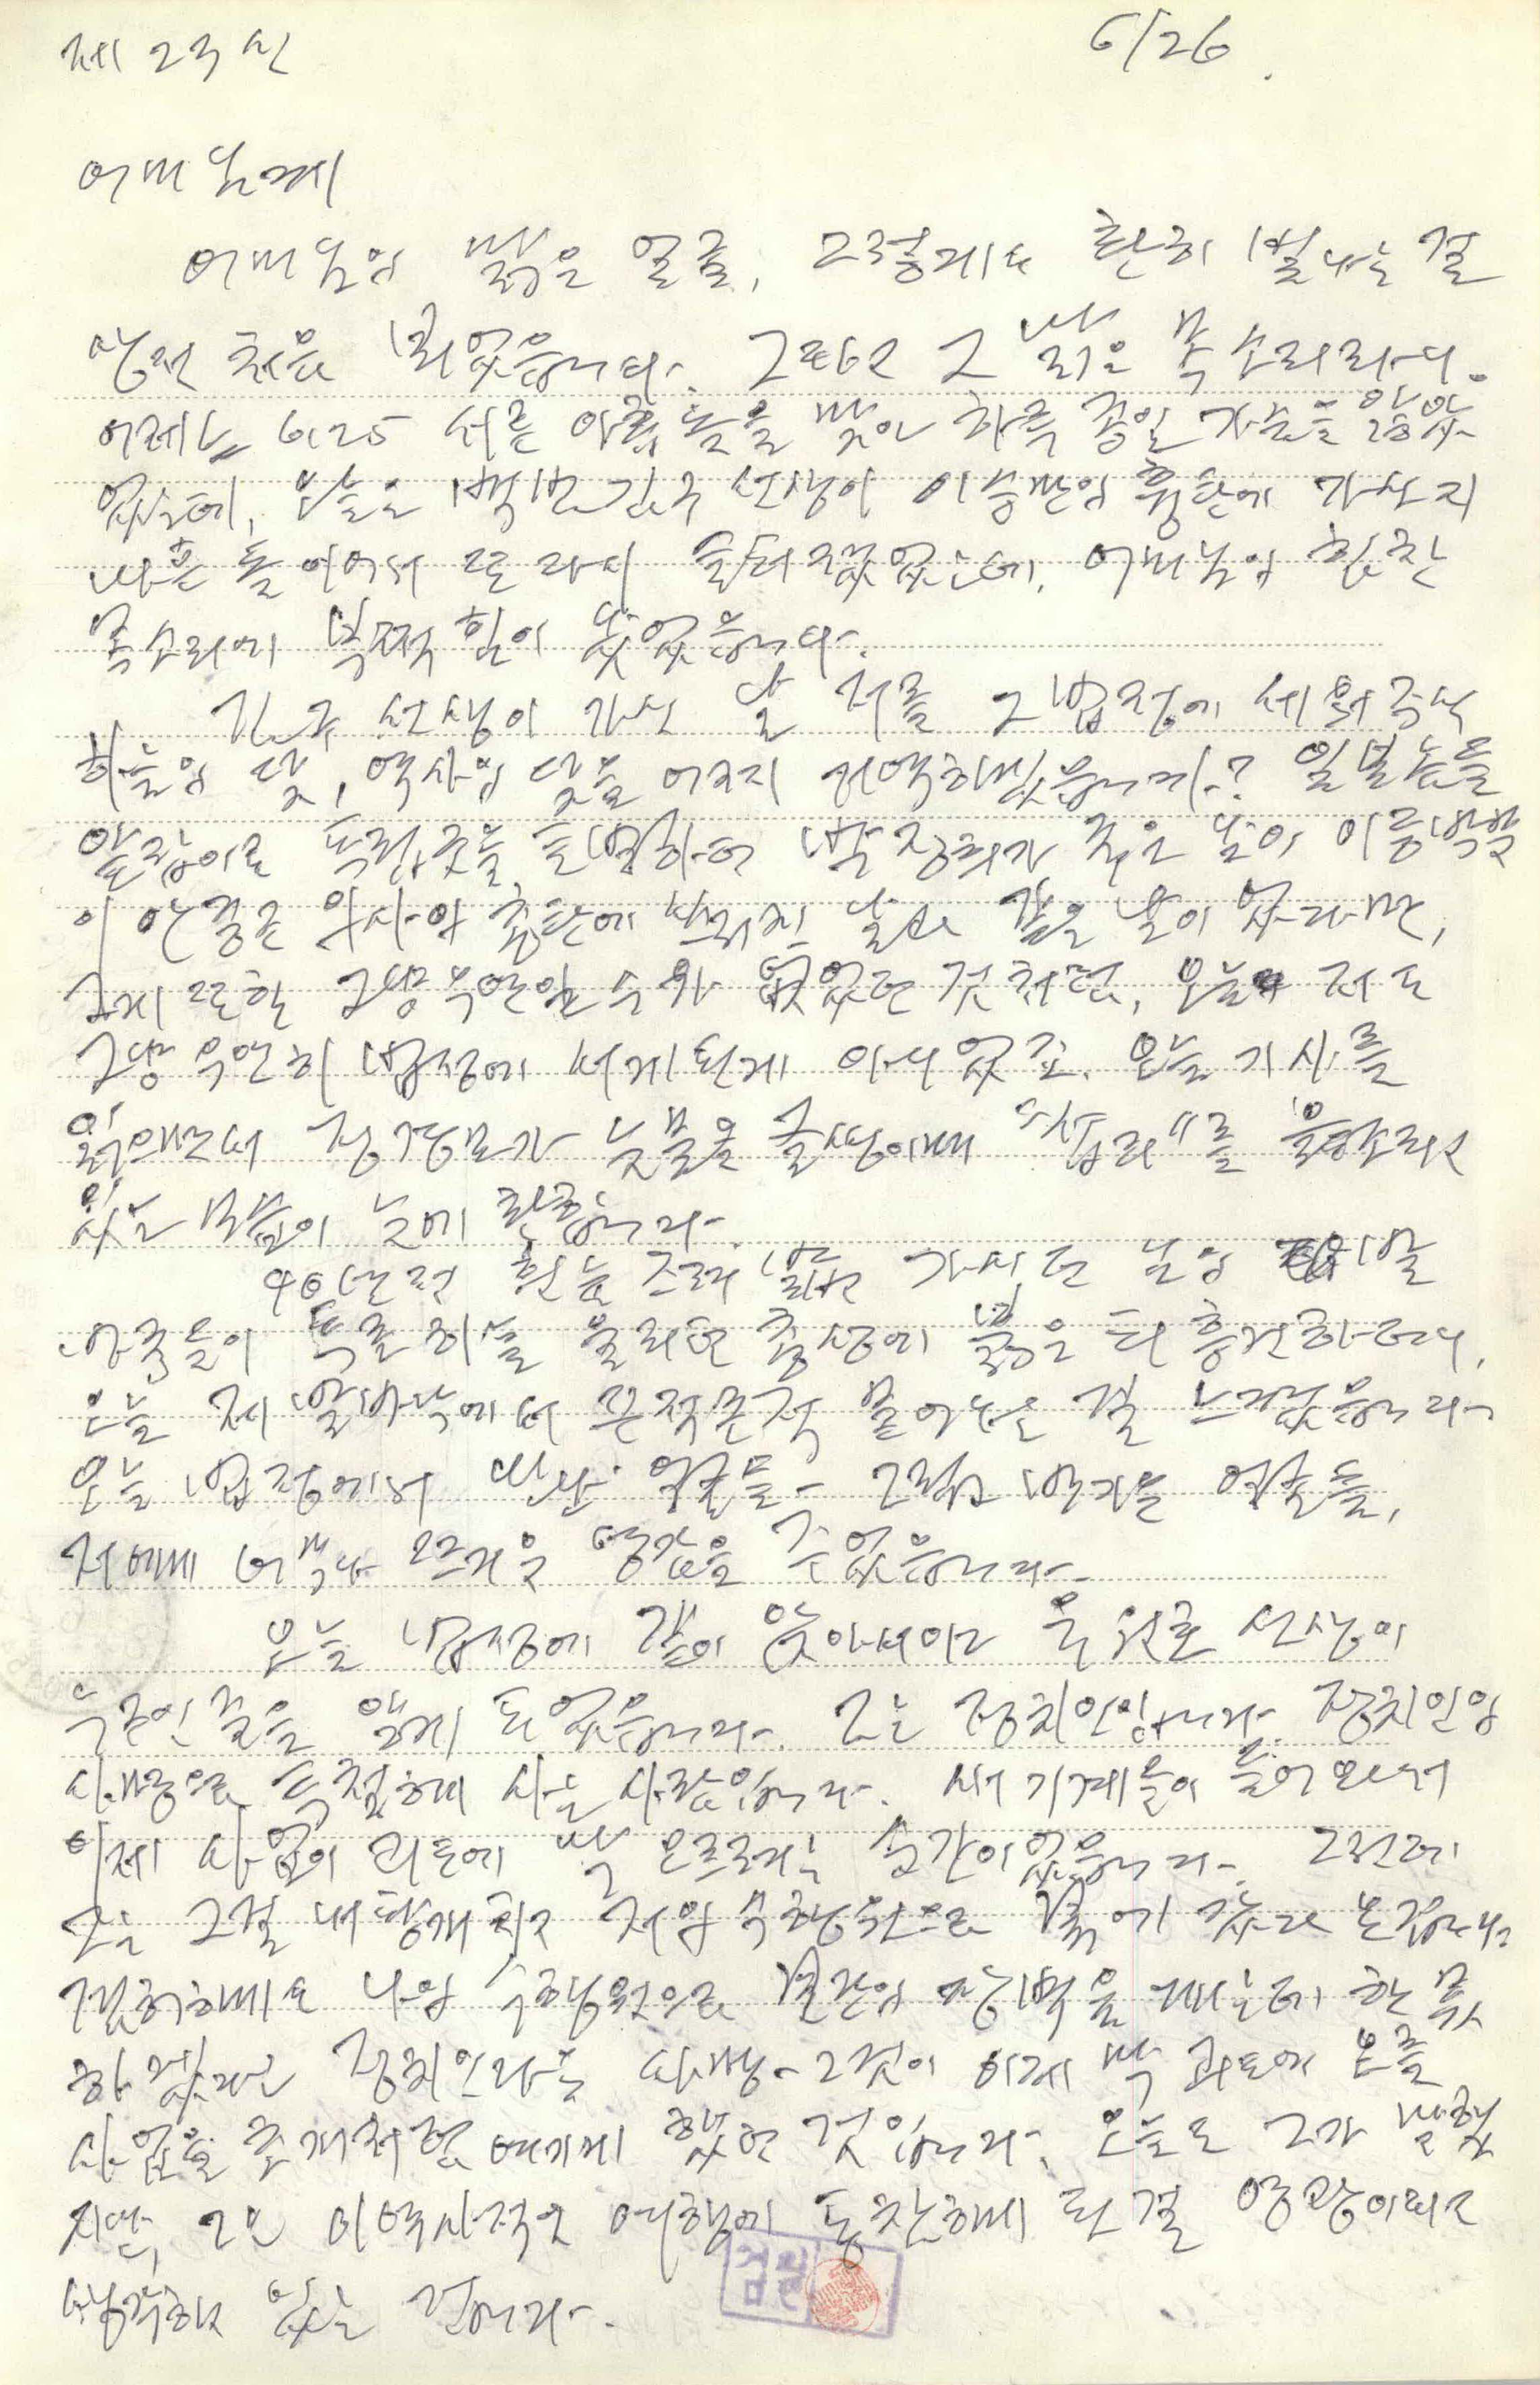 제 23 신 6/26.
어머님께
어머님의 밝은 얼굴, 그렇게도 환히 빛나는 걸
생전 처음 뵈었습니다. 그리고 그 맑은 목소리라니.
어제는 6.25 서른 아홉 돌을 맞아 하루 종일 가슴을 앓았
었는데, 오늘은 백범 김구 선생이 이승만의 흉탄에 가신 지
마흔 돌이어서 또다시 울적했었는데, 어머님의 환한
목소리에 부쩍 힘이 났었습니다.
김구 선생이 가신 날 저를 그 법정에 세워주신
하늘의 뜻, 역사의 뜻을 어찌 거역하겠습니까? 일본놈들
앞잡이로 독립군을 토벌하던 박정희가 죽은 날이 이등박문
이 안중근 의사의 총탄에 쓰러진 날과 같은 날이 었다면,
그게 또한 그냥 우연일 수가 없었던 것처럼, 오늘 저도
그냥 우연히 법정에 서게 된게 아니었죠. 오늘 기사를
읽으면서 정경모가 눈물을 글썽이며 "섭리"를 중얼거리고
있는 모습이 눈에 환합니다.
40년 전 흰눈 즈려 밟고 가시던 님의 발
자국들이 뚝뚝 피를 흘리던 충정에 붉은 피 흥건하더니,
오늘 제 발바닥에서 끈적끈적 묻어나는 걸 느꼈습니다.
오늘 법정에서 만난 얼굴들- 그립고 반가운 얼굴들,
저에게 너무나 뜨거운 영감을 주었습니다.
오늘 법정에 같이 앉아서야 유원호 선생이
누군인줄을 알게 되었습니다. 그는 정치인입니다. 정치인의
사명으로 투철하게 사는 사람입니다. 새 기계들이 들어와서
이제 사업이 궤도에 막 오르려는 순간이었습니다. 그런데
그는 그걸 내팽개치고 저의 수행원으로 평양에 갔다 온겁니다
문익환에도 나의 수행원으로 분단의 장벽을 깨는데 한 몫
하겠다는 정치인다운 사명- 그것이 이제 막 궤도에 오를
사업을 초개처럼 여기게 했던 것입니다. 오늘도 그가 말했
지만, 그는 이 역사적인 여행에 동참하게 된 걸 영광이라고
생각하고 있는 겁니다.